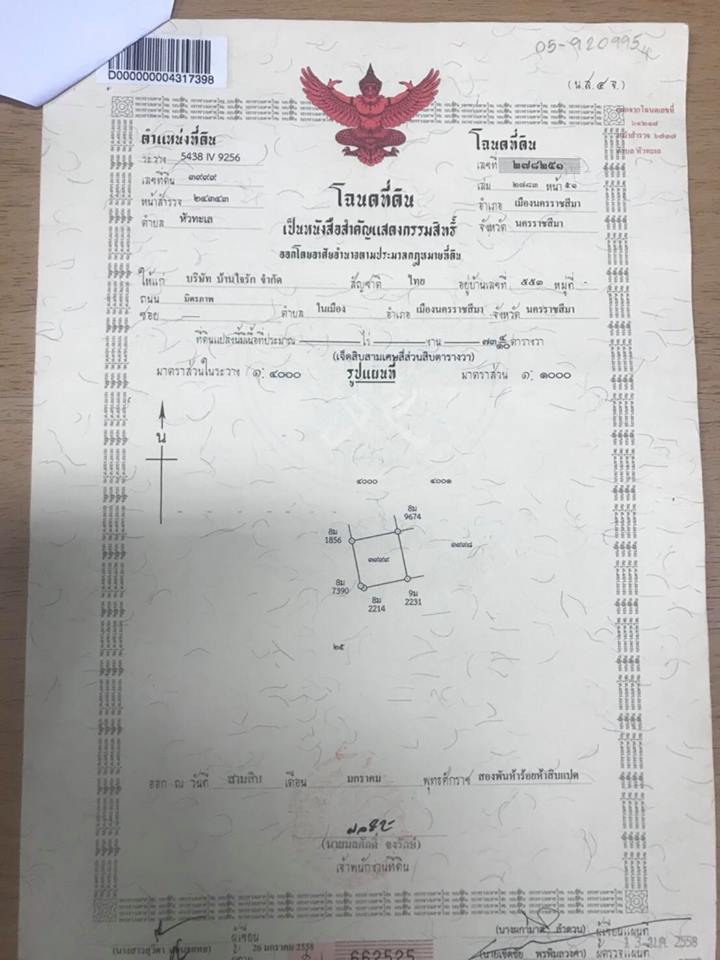 D000000004317398
05-920995
(น.ส.๔ จ.)
ตำแหน่งที่ดิน
ระวาง 5438 IV 9256
เลขที่ดิน ๓๙๙๙
หน้าสำรวจ ๒๔๓๔๓
ตำบล หัวทะเล
โฉนดที่ดิน
เลขที่ ๒๗๘๒๕๑
เล่ม ๒๗๘๓ หน้า ๕๑
อำเภอ เมืองนครราชสีมา
จังหวัด นครราชสีมา
โฉนดที่ดิน
เป็นหนังสือสำคัญแสดงกรรมสิทธิ์
ออกโดยอาศัยอำนาจตามประมวลกฎหมายที่ดิน
ให้แก่ บริษัท บ้านใจรัก จำกัด สัญชาติ ไทย อยู่บ้านเลขที่ ๕๕๓ หมู่ที่ -
ถนน มิตรภาพ
ซอย — ตำบล ในเมือง อำเภอ เมืองนครราชสีมา จังหวัด นครราชสีมา
ที่ดินแปลงนี้มีเนื้อที่ประมาณ — ไร่ — งาน ๗๓ ๔/๑๐ ตารางวา
(เจ็ดสิบสามเศษสี่ส่วนสิบตารางวา)
มาตราส่วนในระวาง ๑: ๔๐๐๐ รูปแผนที่ มาตราส่วน ๑: ๑๐๐๐
น
๔๐๐๐ ๔๐๐๑
8ม
9674
8ม
1856
๓๙๙๙
๓๙๙๘
8ม
7390
8ม
2214
9ม
2231
๒๕
ออก ณ วันที่ สามสิบ เดือน มกราคม พุทธศักราช สองพันห้าร้อยห้าสิบแปด
เจ้าพนักงานที่ดิน
ผู้เขียน
26 มกราคม 2558
662525
ผู้เขียนแผนที่
ผู้ตรวจแผนที่